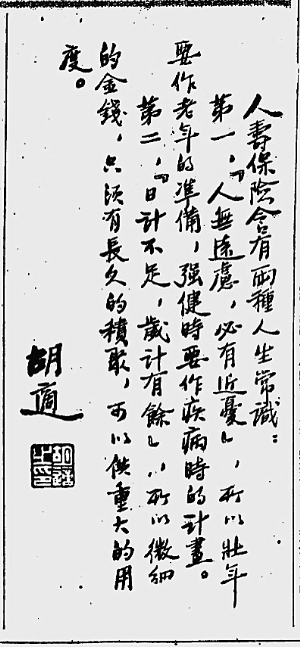 人壽保險含有兩種人生常識：
第一，『人無遠慮，必有近憂』，所以壯年
要作老年的準備，強健時要作疾病時的計畫。
第二，『日計不足，歲計有餘』，所以微細
的金錢，只須有長久的積聚，可以供重大的用
度。
胡適
胡適之印